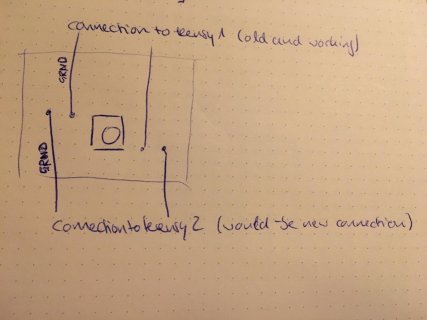 connection to teensy 1 (old and working)
GRND
GRND
connection to teensy 2 (would-be new connection)